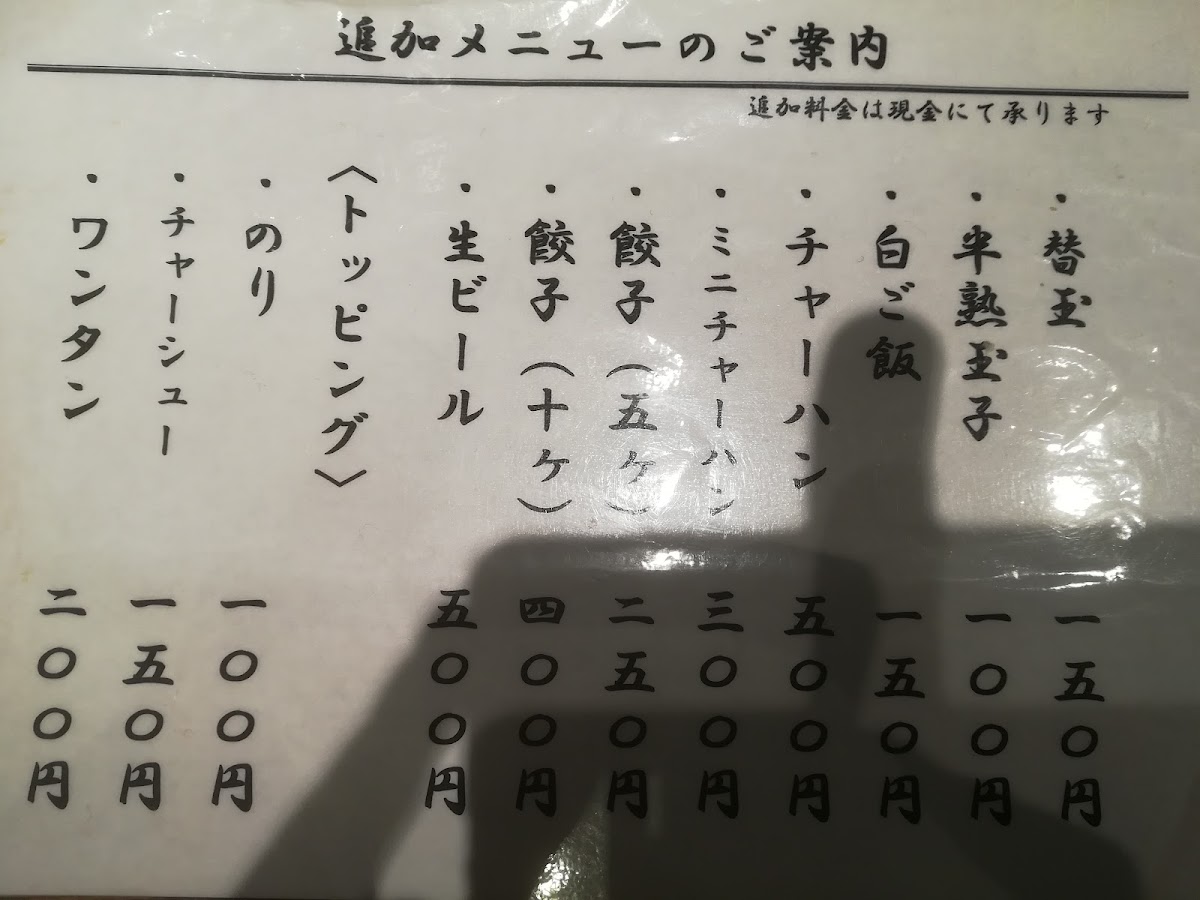 追加メニューのご案内
追加料金は現金にて承ります
・替玉 一五〇円
・半熟玉子 一〇〇円
・白ご飯 一五〇円
・チャーハン 五〇〇円
・ミニチャーハン 三〇〇円
・餃子（五ケ） 二五〇円
・餃子（十ケ） 四〇〇円
・生ビール 五〇〇円
〈トッピング〉
・のり 一〇〇円
・チャーシュー 一五〇円
・ワンタン 二〇〇円